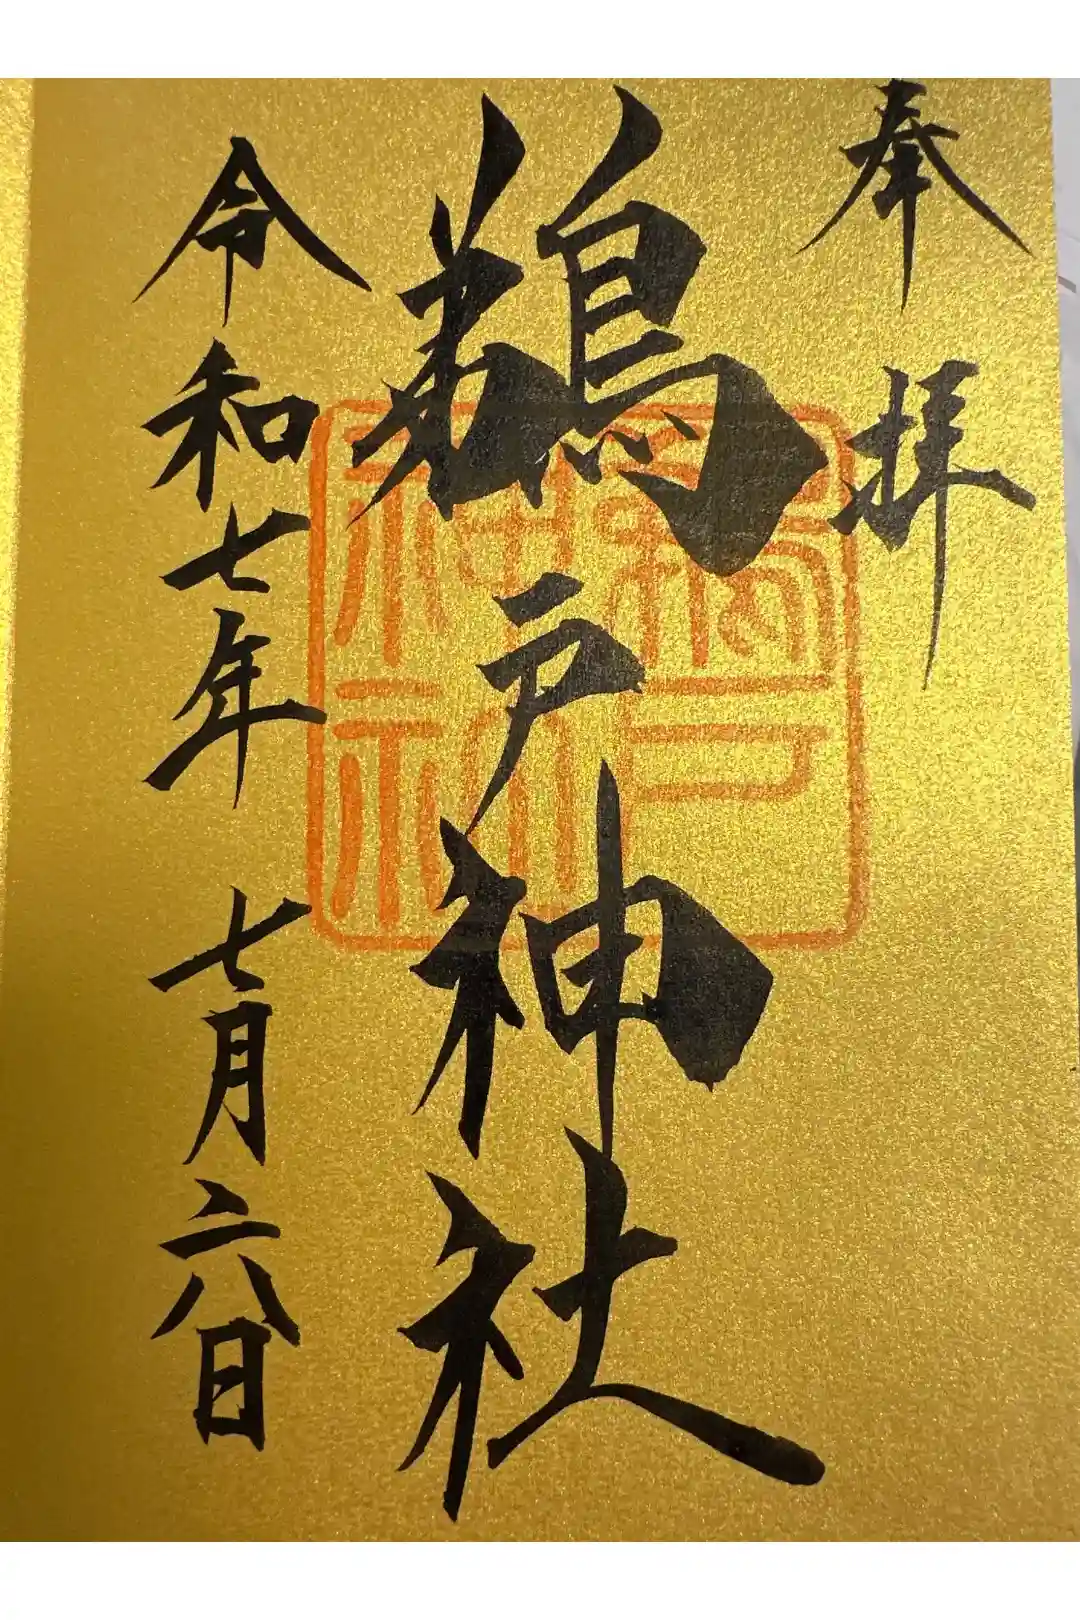 奉拝
鵜戸神社
令和七年 七月二八日
鵜戸
神社